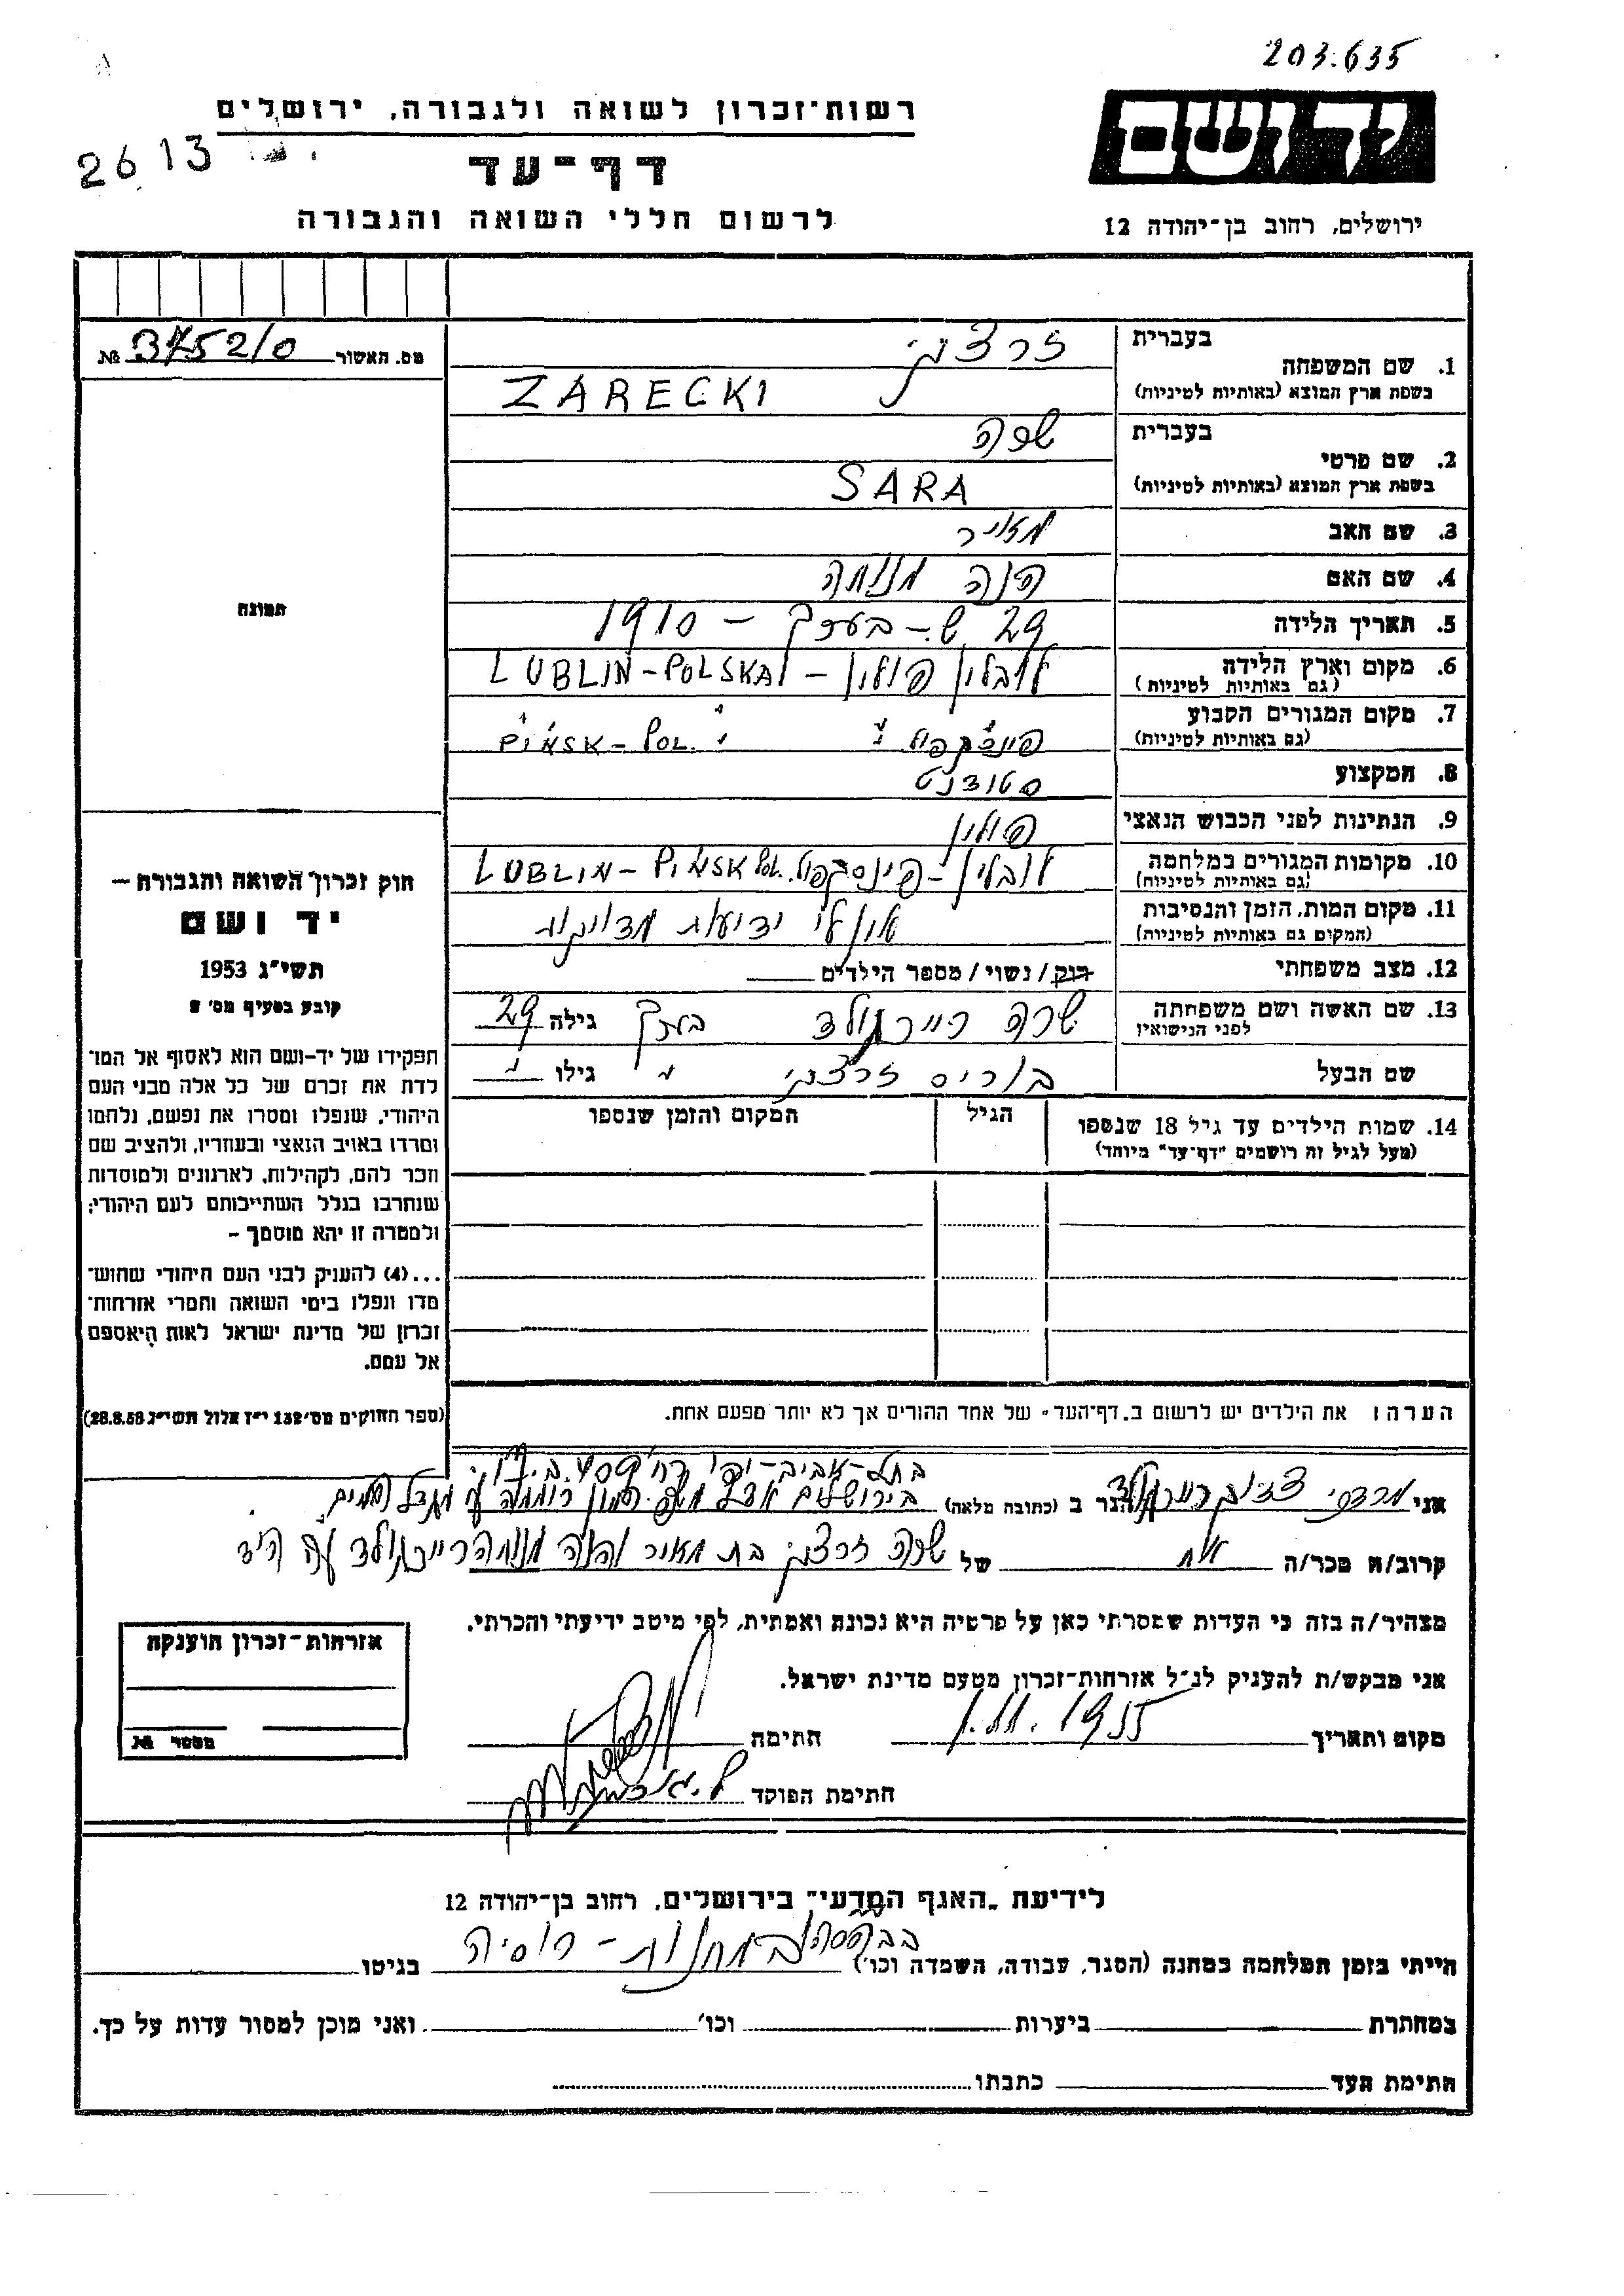 203.635
רשות־זכרון לשואה ולגבורה, ירושלים
יד ושם
26 13
דף־עד
לרשום חללי השואה והגבורה
ירושלים, רחוב בן־יהודה 12
מס. האשור № 3752/0
בעברית
1. שם המשפחה זרצקי
בשפת ארץ המוצא (באותיות לטיניות) ZARECKI
בעברית שרה
2. שם פרטי
בשפת ארץ המוצא (באותיות לטיניות) SARA
3. שם האב מאיר
4. שם האם חנה מנוחה
5. תאריך הלידה 29 ש׳ – בערך – 1910
6. מקום וארץ הלידה לובלין פולין – LUBLIN-POLSKA
(גם באותיות לטיניות)
7. מקום המגורים הקבוע PIŃSK-POL.
(גם באותיות לטיניות)
8. המקצוע סטודנט
9. הנתינות לפני הכבוש הנאצי פולין
10. מקומות המגורים במלחמה לובלין – LUBLIN-PIŃSK POL.
(גם באותיות לטיניות)
11. מקום המות, הזמן והנסיבות אין לי ידיעות מדויקות
(המקום גם באותיות לטיניות)
12. מצב משפחתי רווק/נשוי/מספר הילדים
13. שם האשה ושם משפחתה שרה בערך גילה 29
לפני הנישואין
שם הבעל בוריס זרצקי " גילו "
14. שמות הילדים עד גיל 18 שנספו הגיל המקום והזמן שנספו
(מעל לגיל זה רושמים "דף־עד" מיוחד)
תמונה
חוק זכרון השואה והגבורה —
יד ושם
תשי"ג 1953
קובע בסעיף מס' 2
תפקידו של יד־ושם הוא לאסוף אל המו־
לדת את זכרם של כל אלה מבני העם
היהודי, שנפלו ומסרו את נפשם, נלחמו
ומרדו באויב הנאצי ובעוזריו, ולהציב שם
וזכר להם, לקהילות, לארגונים ולמוסדות
שנחרבו בגלל השתייכותם לעם היהודי;
ולמטרה זו יהא מוסמך –
...(4) להעניק לבני העם היהודי שהוש־
מדו ונפלו בימי השואה והמרי אזרחות־
זכרון של מדינת ישראל לאות היאספם
אל עמם.
(ספר החוקים מס' 132 י"ז אלול תשי"ג 28.8.53)
הערה: את הילדים יש לרשום ב„דף־העד" של אחד ההורים אך לא יותר מפעם אחת.
בתל-אביב-יפו
אני מרדכי הגר ב (כתובת מלאה) בירושלים
קרוב/ה מכר/ה אח של שרה זרצקי בת מאיר וחנה מנוחה
מצהיר/ה בזה כי העדות שמסרתי כאן על פרטיה היא נכונה ואמתית, לפי מיטב ידיעתי והכרתי.
אני מבקש/ת להעניק לנ"ל אזרחות־זכרון מטעם מדינת ישראל.
מקום ותאריך 1955 חתימה
חתימת הפוקד
אזרחות־זכרון הוענקה
מספר №
לידיעת „האגף המדעי" בירושלים, רחוב בן־יהודה 12
הייתי בזמן המלחמה במחנה (הסגר, עבודה, השמדה וכו') במחנות – רוסיה בגיטו
במחתרת ביערות וכו' ואני מוכן למסור עדות על כך.
חתימת העד כתבתו